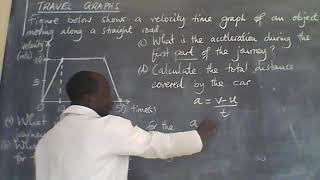 TRAVEL GRAPHS
Figure below shows a velocity time graph of an object
moving along a straight road
Velocity
(m/s)
10
5
10
50 time(s)
(c) What is the acceleration during the
first part of the journey?
(d) Calculate the total distance
covered by the car
a = v-u
t
(a) What
for the
a